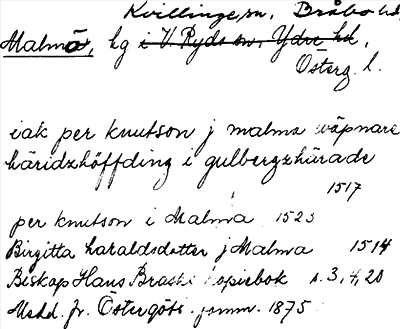 Kvillinge sn, Bråbo hd,
Malmö, hg i V. Ryds sn, Ydre hd,
Österg. l.
iak per knutson j malma wäpnare
häridzhöffding i gulbergzhärade
1517
per knutson i Malma 1523
Birgitta haraldsdotter j Malma 1514
Biskop Hans Brasks kopiebok s. 3, 4, 20
Medd. fr. Östergötl. fornm. 1875